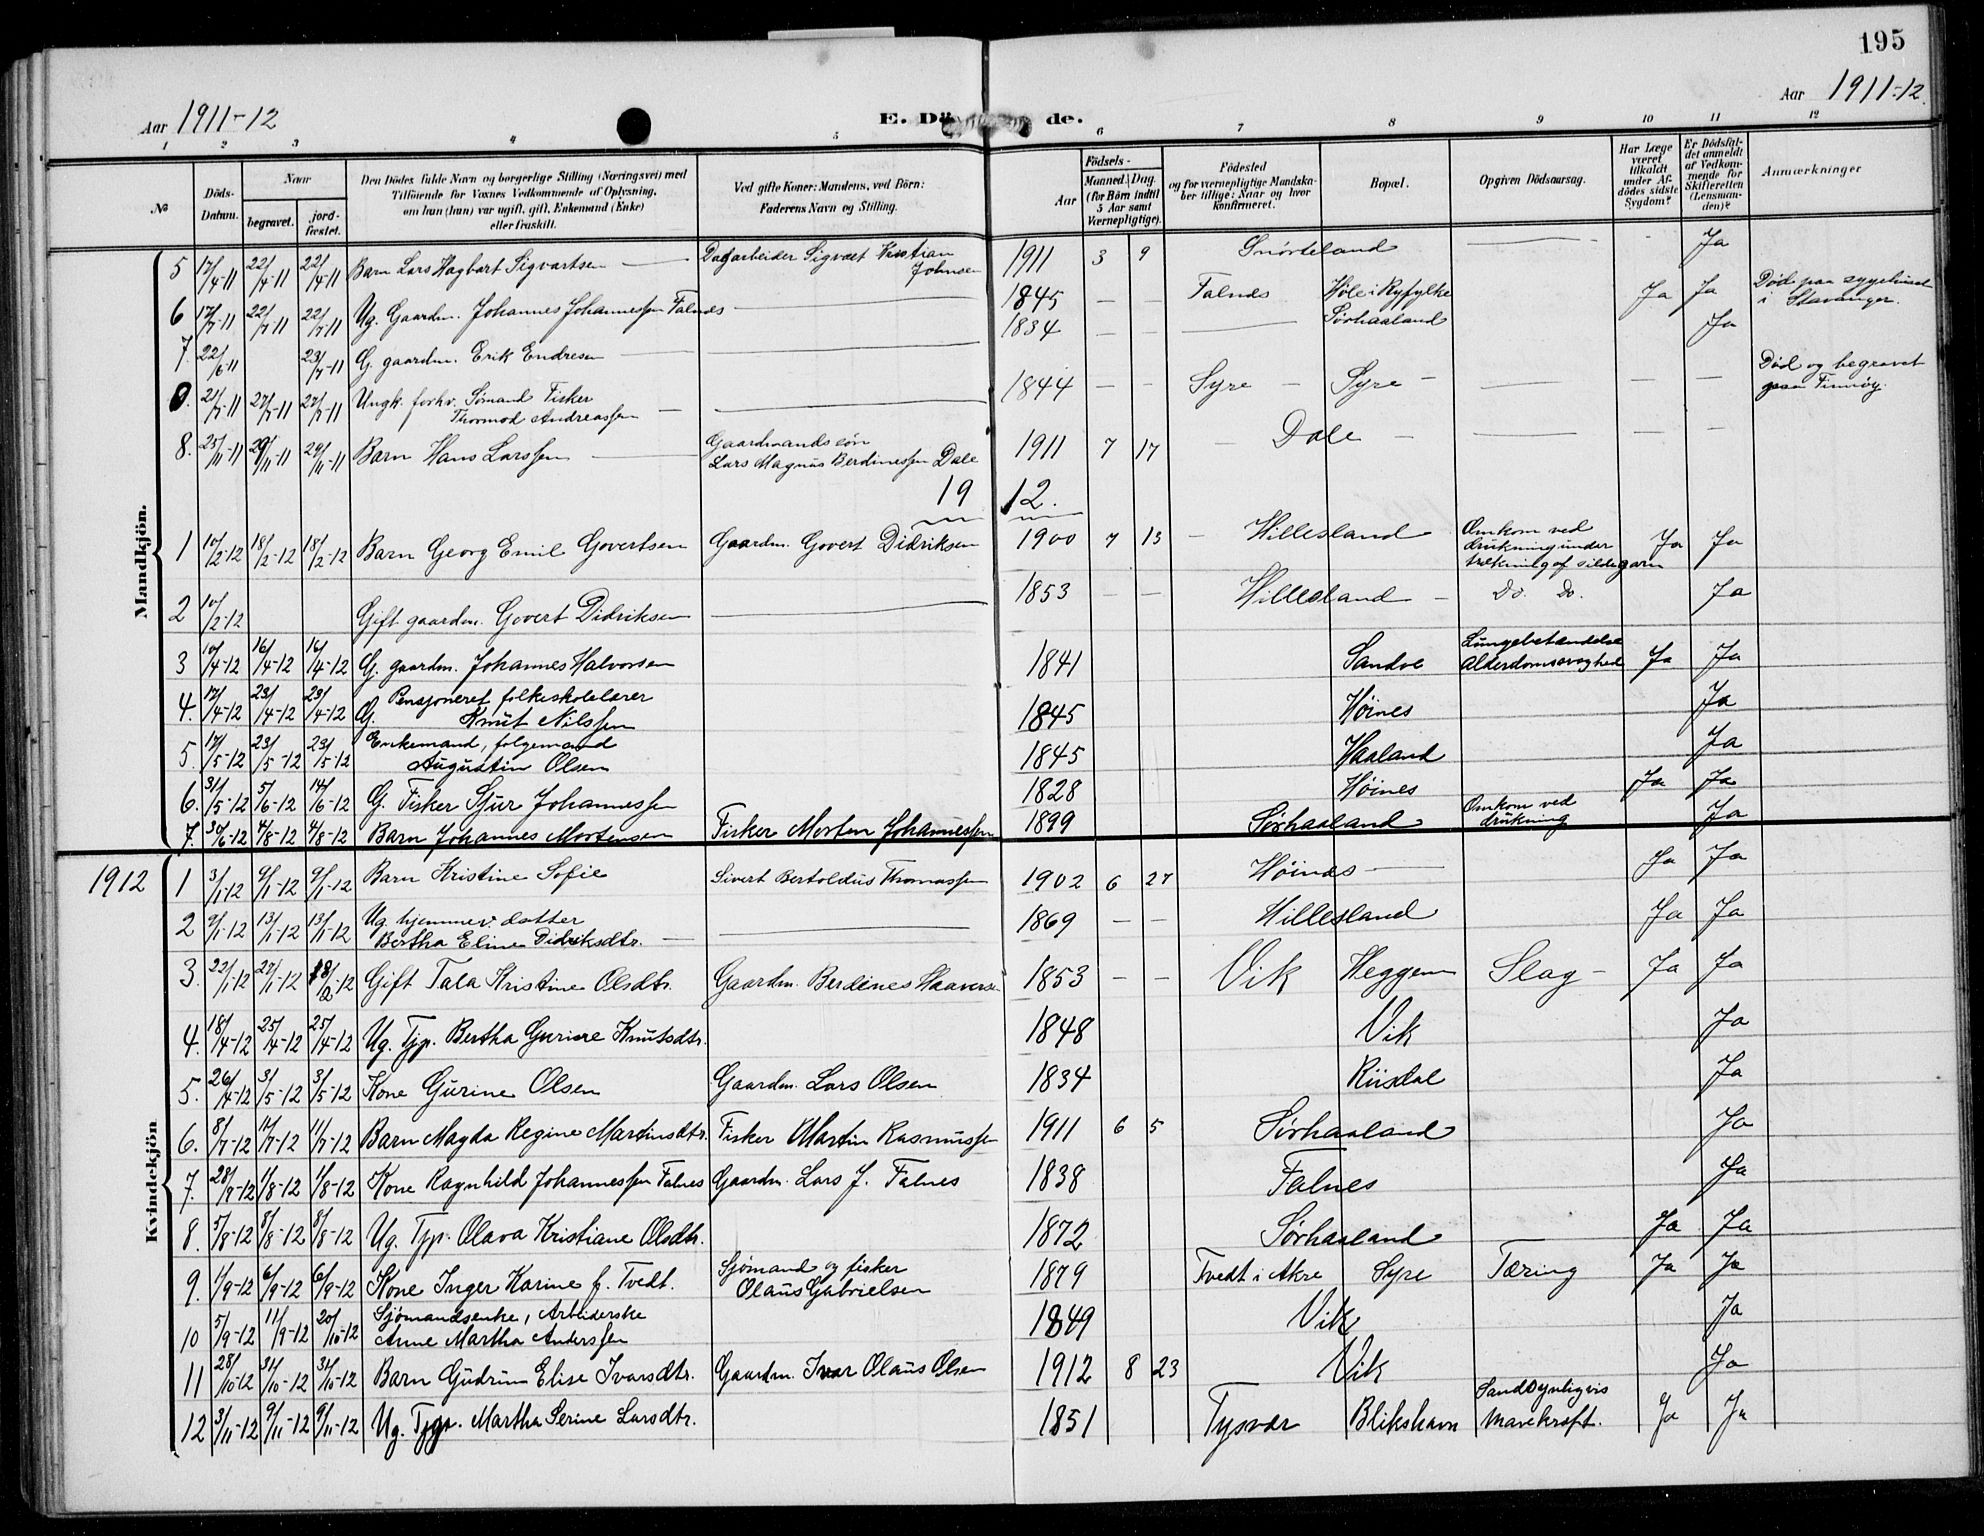 195
Aar 1911-12
E. Dö de.
Aar 1911-12.
1 2 3 4 5 6 7 8 9 10 11 12
№
Döds-Datum.
Naar
begravet.
jord-fæstet.
Den Dödes fulde Navn og borgerlige Stilling (Næringsvei) med
Tilföiende for Voxnes Vedkommende af Oplysning,
om han (hun) var ugift, gift, Enkemand (Enke)
eller fraskilt.
Ved gifte Koner: Mandens, ved Börn:
Faderens Navn og Stilling.
Födsels-
Aar
Maaned. Dag.
(for Börn indtil
5 Aar samt
Værnepligtige).
Födested
og for værnepligtige Mandska-
ber tillige: Naar og hvor
konfirmeret.
Bopæl.
Opgiven Dödsaarsag.
Har Læge
været
tilkaldt
under Af-
dödes sidste
Sygdom?
Er Dödsfal-
det anmeldt
af Vedkom-
mende for
Skifteretten
(Lensman-
den)?
Anmærkninger
Mandkjön.
5 17/4-11 22/4-11 22/4-11 Barn Lars Hagbart Sigvartsen — Dagarbeider Sigvart Kristian Johnsen 1911 3 9 Snörteland — Ja
6 17/7-11 22/7-11 22/7-11 Ug. Gaardm. Johannes Johannessen Falnes — 1845 — — Falnes Høle i Ryfylke Ja Ja Død paa sygehuset i Stavanger.
7. 22/6-11 23/7-11 G. gaardm. Erik Endresen — 1834 — — — Sørhaaland Ja
21/7-11 27/7-11 27/7-11 Ungk. forhv. Sømand Fisker Thormod Andreassen — 1844 — — Syre — Syre — — — — Død og begravet paa Finnöy.
8. 25/11-11 29/11-11 29/11-11 Barn Hans Larssen — Gaardmands søn Lars Magnus Berdinessen Dale 1911 7 17 — Dale — — — —
1912.
1 10/2-12 18/2-12 18/2-12 Barn Georg Emil Govertsen Gaardm. Govert Didriksen 1900 7 13 — Hillesland Omkom ved drukning under trækning af sildegarn Ja Ja
2 10/2-12 Gift gaardm. Govert Didriksen — 1853 — — Hillesland — Do. Do. Ja
3 10/4-12 16/4-12 16/4-12 G. gaardm. Johannes Halvorsen 1841 Sandve Lungebetændelse Alderdomssvaghed Ja Ja
4. 17/4-12 23/4-12 23/4-12 G. Pensjoneret folkeskolelærer Knut Nilssen 1845 Høines Ja
5. 17/5-12 23/5-12 23/5-12 Enkemand, følgemand Augustin Olsen 1845 Haaland Ja
6. 31/5-12 5/6-12 14/6-12 G. Fisker Sjur Johannessen 1828 Høines Ja Ja
7. 30/6-12 4/8-12 4/8-12 Barn Johannes Mortensen Fisker Morten Johannessen 1899 Sørhaaland Omkom ved drukning Ja
Kvindekjön
1912 1 3/1-12 9/1-12 9/1-12 Barn Kristine Sofie Sivert Bertoldus Thomassen 1902 6 27 Høines — Ja Ja
2 9/1-12 13/1-12 13/1-12 Ug. hjemmev. datter Bertha Eline Didriksdtr. — 1869 — — Hillesland Ja Ja
3. 22/1-12 27/1-12 18/2-12 Gift Tala Kristine Olsdtr. Gaardm. Berdines Haaversen 1853 — — Vik Heggem Slag — Ja Ja
4. 18/4-12 25/4-12 25/4-12 Ug. Tjp. Bertha Gurine Knutsdtr. 1848 Vik Ja
5. 26/4-12 3/5-12 3/5-12 Kone Gurine Olsen Gaardm. Lars Olsen 1834 Riisdal Ja
6. 8/7-12 11/7-12 11/7-12 Barn Magda Regine Martinsdtr. Fisker Martin Rasmussen 1911 6 5 Sørhaaland Ja
7. 28/7-12 1/8-12 1/8-12 Kone Ragnhild Johannessen Falnes Gaardm. Lars J. Falnes 1838 Falnes Ja
8. 5/8-12 8/8-12 8/8-12 Ug. Tjp. Olava Kristiane Olsdtr. 1872 Sørhaaland Ja Ja
9. 1/9-12 6/9-12 6/9-12 Kone Inger Karine f. Tvedt. Sjømand og fisker Olaus Gabrielsen 1879 Tvedt i Akre Syre Tæring Ja Ja
10 5/9-12 11/9-12 20/10-12 Sjømandsenke, Arbeiderske Anne Martha Anderssen 1849 Vik Ja
11 28/10-12 31/10-12 31/10-12 Barn Gudrun Elise Ivarsdtr. Gaardm. Ivar Olaus Olsen 1912 8 23 Vik Ja
12 3/11-12 9/11-12 9/11-12 Ug. Tjp. Martha Serine Larsdtr. 1851 Tysvær Blikshavn Sandsynligvis Mavekræft. Ja Ja